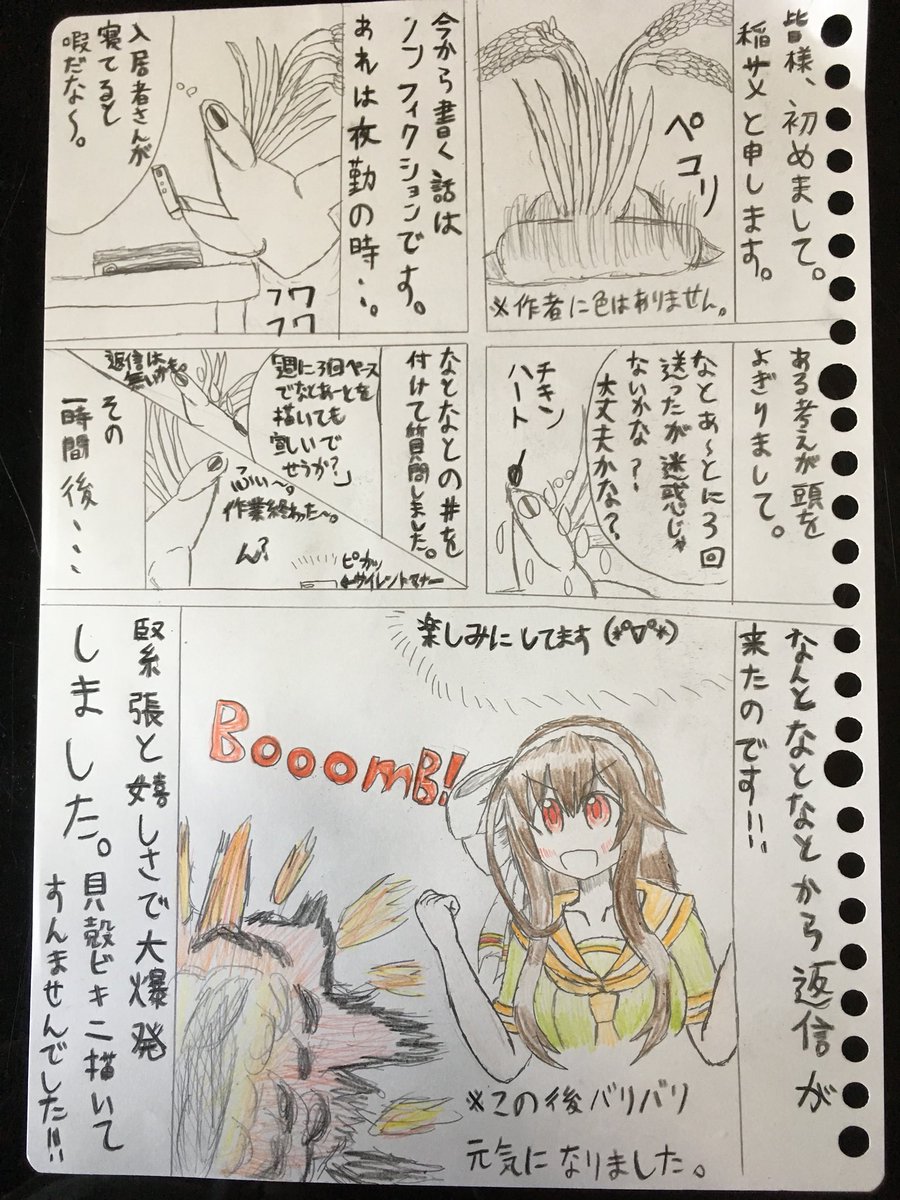 皆様、初めまして。
稲サメと申します。
ペコリ
※作者に色はありません。
今から書く話は
ノンフィクションです。
あれは夜勤の時…。
入居者さんが
寝てると
暇だな～。
フワ
フワ
ある考えが頭を
よぎりまして。
なとあ～とに3回
送ったが迷惑じゃ
ないかな？
大丈夫かな？
チキン
ハート
なとなとの#を
付けて質問しました。
「週に3回ペース
でなとあーとを
描いても
宜しいで
せうか？」
返信は
無いかも。
ふぃ～。
作業終わった～。
ん？
ピカッ
←サイレントマナー
その
一時間後・・・
なんとなとなとから返信が
来たのです!!!
楽しみにしてます(*°∀°*)
BooomB!
※この後バリバリ
元気になりました。
緊張と嬉しさで大爆発
しました。貝殻ビキニ描いて
すんませんでした!!!